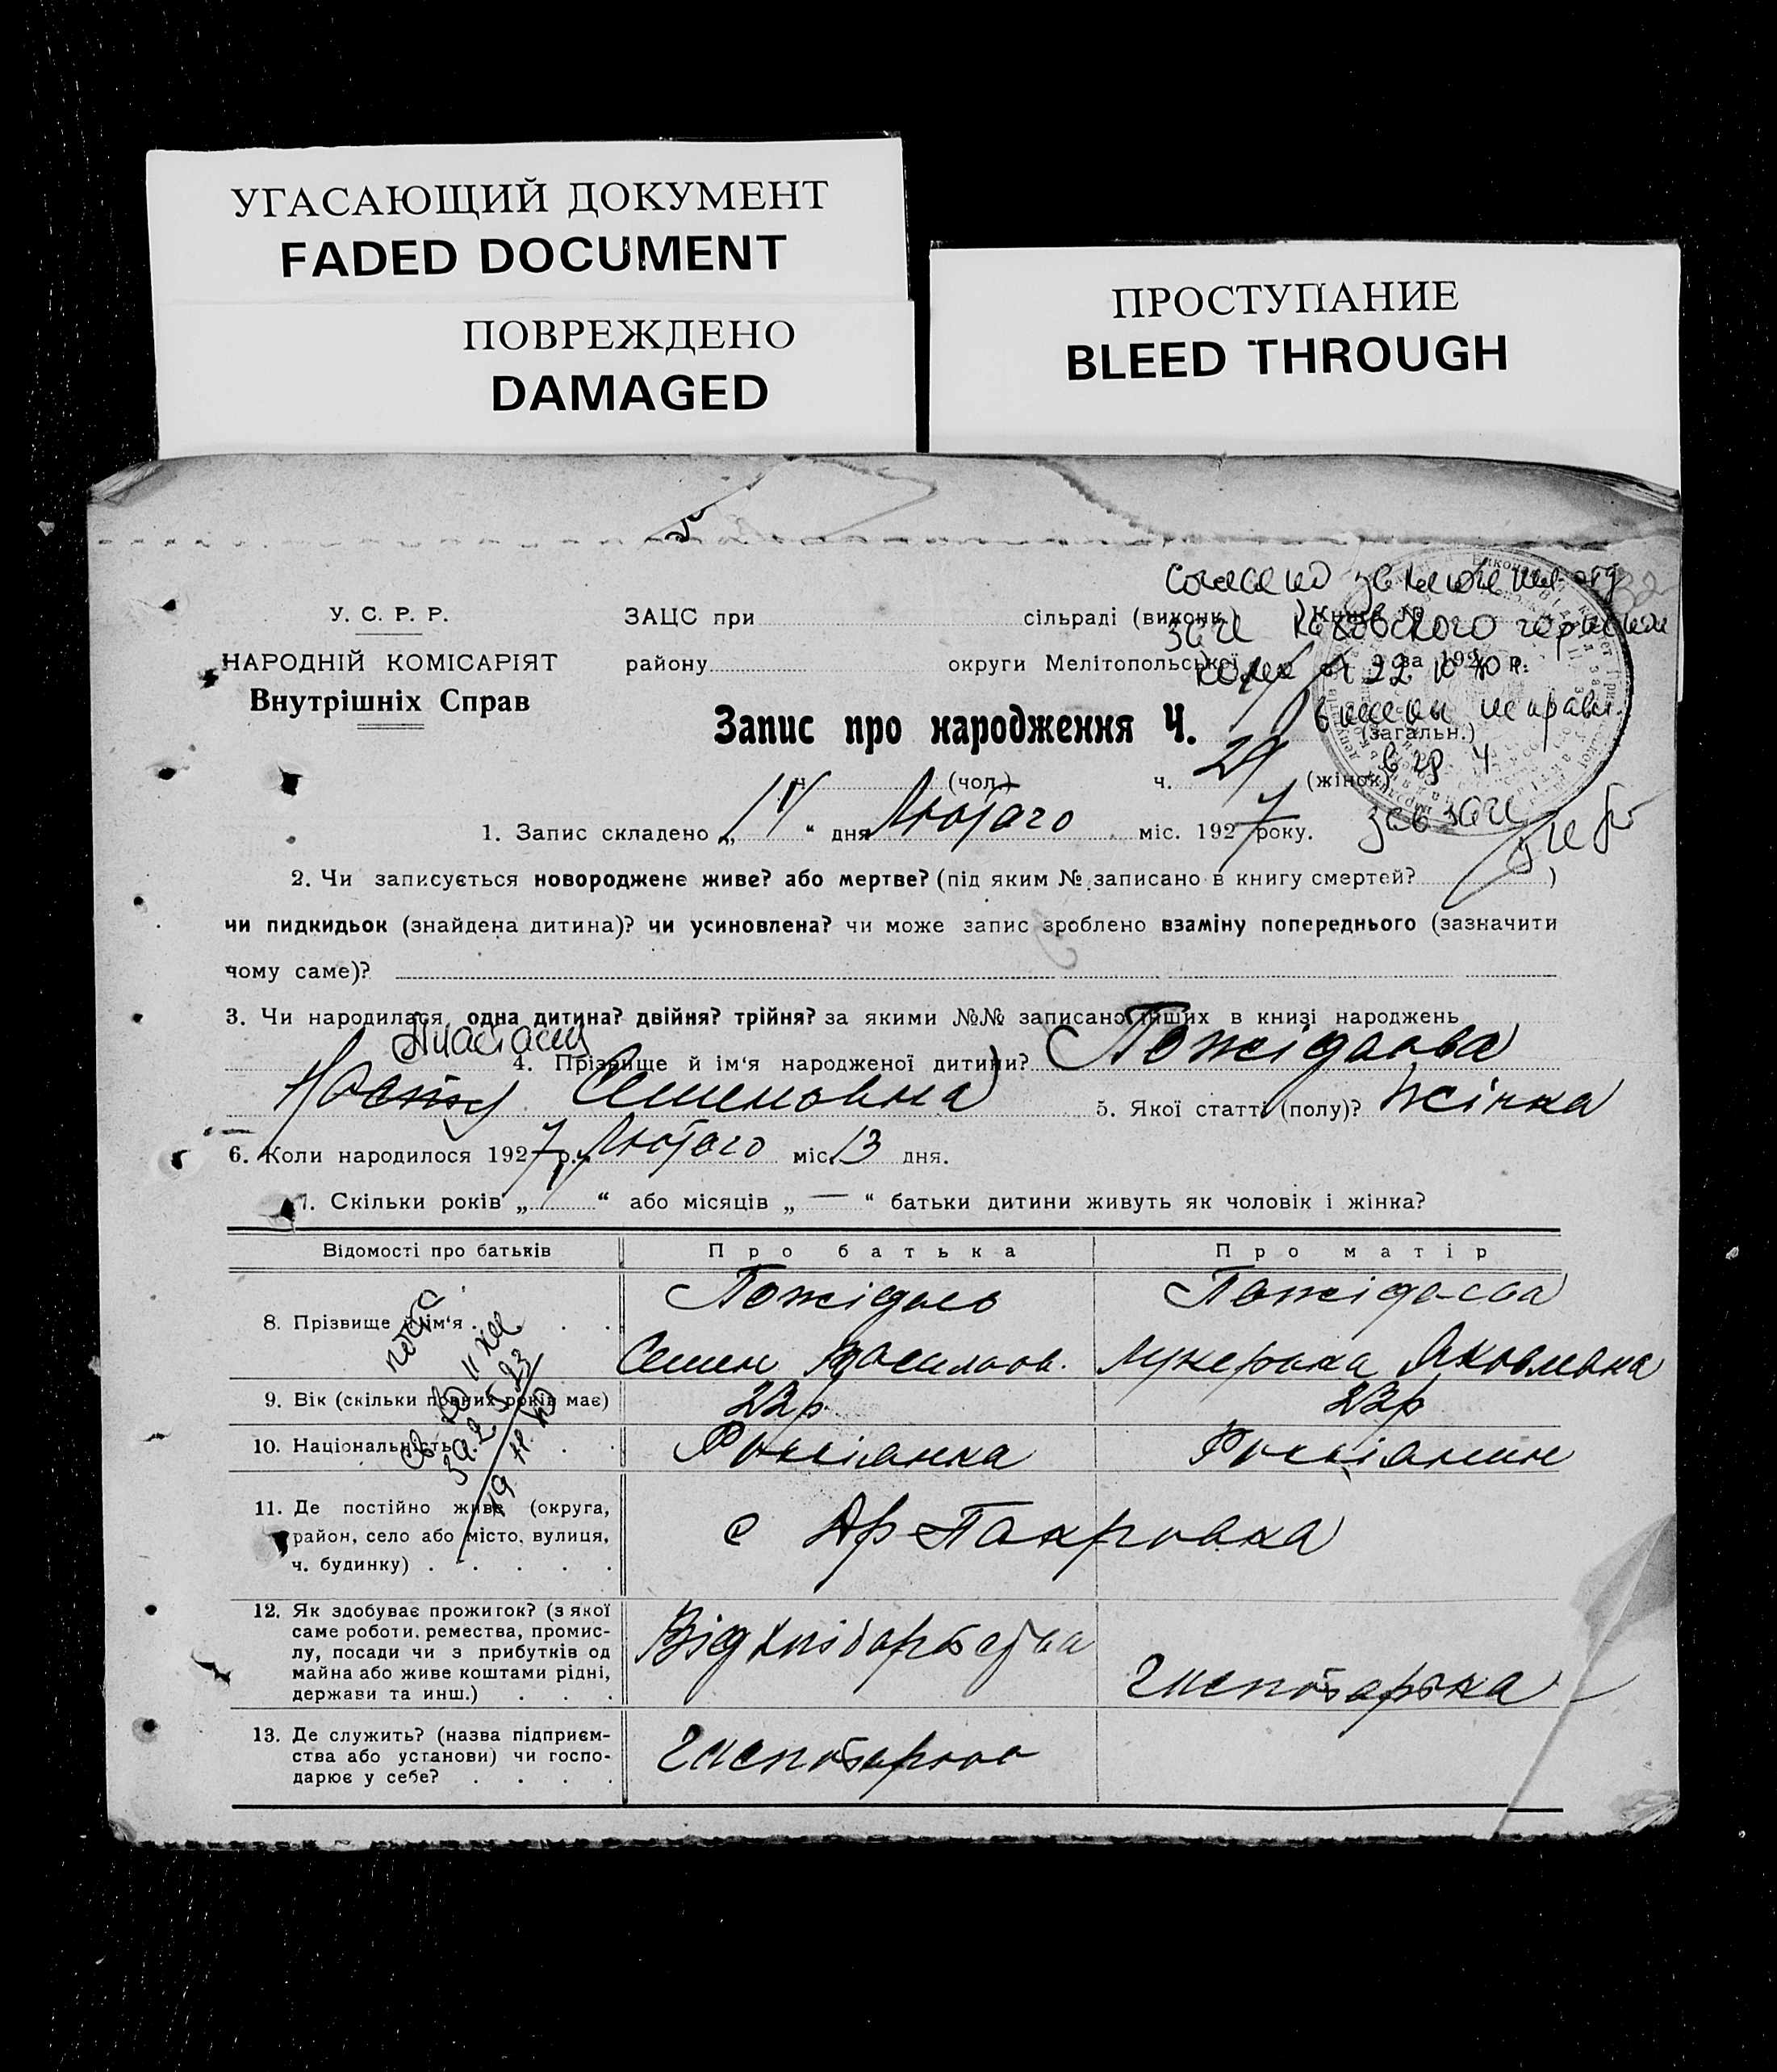 УГАСАЮЩИЙ ДОКУМЕНТ
FADED DOCUMENT
ПОВРЕЖДЕНО
DAMAGED
ПРОСТУПАНИЕ
BLEED THROUGH
У. С. Р. Р.
НАРОДНІЙ КОМІСАРІЯТ
Внутрішніх Справ
ЗАЦС при сільраді (виконк.) Книга №
района округи Мелітопольської за 192 р.
от 22 10 70
Запис про народження Ч.
(загальн.)
в гр 4
ч. (чол.) ч. 21 (жінок)
зав загс
1. Запис складено „ 14 “ дня Лютого міс. 1927 року.
2. Чи записується новороджене живе? або мертве? (під яким № записано в книгу смертей? )
чи пидкидьок (знайдена дитина)? чи усиновлена? чи може запис зроблено взаміну попереднього (зазначити
чому саме)?
3. Чи народилася одна дитина? двійня? трійня? за якими №№ записано інших в книзі народжень
Анастасия
4. Прізвище й ім‘я народженої дитини? Пожідаова
Настя Семеновна 5. Якої статті (полу)? Жінка
6. Коли народилося 1927 р. Лютого міс. 13 дня.
7. Скільки років „ 1 “ або місяців „ — “ батьки дитини живуть як чоловік і жінка?
Відомості про батьків Про батька Про матір
8. Прізвище й ім‘я . . . .
Пожідаєв Пожідаєва
Семен Васильов. Лукерька Яковлевна
9. Вік (скільки повних років має) 22р 22р
10. Національність . . . Росіянка Росіянин
11. Де постійно живе (округа,
район, село або місто, вулиця,
ч. будинку) . . . . .
с Ар-Пакровка
12. Як здобуває прожиток? (з якої
саме роботи, ремества, промис-
лу, посади чи з прибутків од
майна або живе коштами рідні,
держави та инш.) . . .
Від хліборобства
Гиспобарька
13. Де служить? (назва підприєм-
ства або установи) чи госпо-
дарює у себе? . . . .